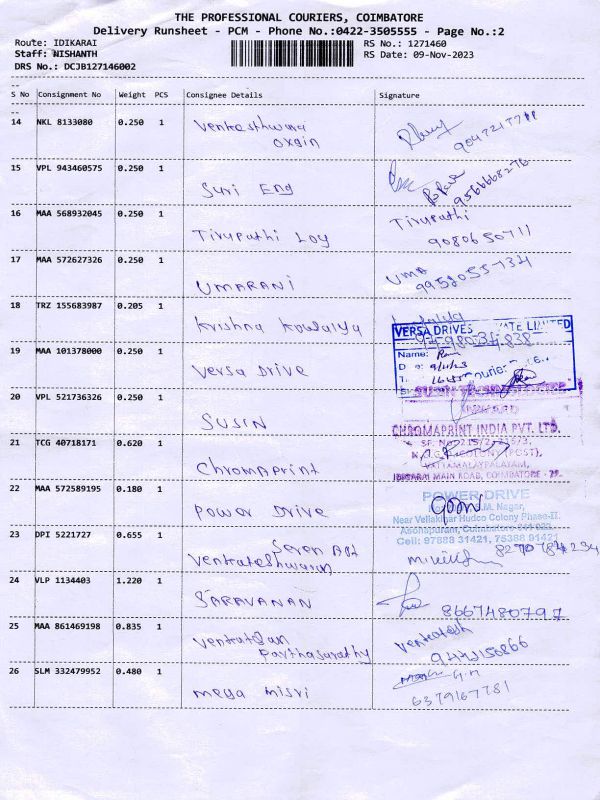 THE PROFESSIONAL COURIERS, COIMBATORE
Delivery Runsheet - PCM - Phone No.:0422-3505555 - Page No.:2
Route: IDIKARAI
Staff: NISHANTH
DRS No.: DCJB127146002
RS No.: 1271460
RS Date: 09-Nov-2023
S No Consignment No Weight PCS Consignee Details Signature
14 NKL 8133080 0.250 1 Venkateshwara
oxgin
15 VPL 943460575 0.250 1 Suri Eng
9566668276
16 MAA 568932045 0.250 1 Tirupathi Loy Tirupathi
9080650711
17 MAA 572627326 0.250 1 UMARANI UMA
9958055734
18 TRZ 155683987 0.205 1 Krishna Kowsalya
19 MAA 101378000 0.250 1 Versa Drive
VERSA DRIVES LIMITED
Name:
20 VPL 521736326 0.250 1 SUSIN
21 TCG 40718171 0.620 1 Chromaprint
CHROMAPRINT INDIA PVT. LTD.
VATTAMALAYPALAYAM,
IDIGARAI MAIN ROAD, COIMBATORE - 22.
22 MAA 572589195 0.180 1 Power Drive
POWER DRIVE
Near Vellakinar Hudco Colony Phase-II.
Cell: 97888 31421, 75388 91421
23 DPI 5221727 0.655 1 Seven Apt
Venkateshwaran
8270784234
24 VLP 1134403 1.220 1 SARAVANAN
8667480797
25 MAA 861469198 0.835 1 Venkatesan
Parthasarathy
Venkatesh
9442156866
26 SLM 332479952 0.480 1 Mega Misri
6379167781